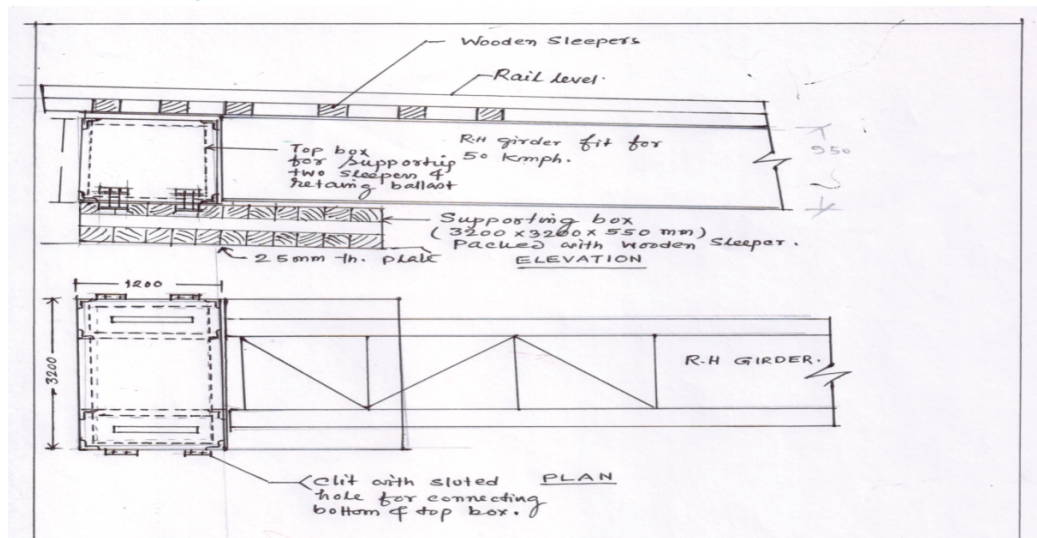 Wooden Sleepers
Rail level.
R.H girder fit for
50 Kmph.
Top box
for supporting
two sleepers &
retaing ballast
950
Supporting box
(3200 x 3200 x 550 mm)
Packed with wooden Sleeper.
25mm th. Plate
ELEVATION
1200
3200
R.H GIRDER.
Clit with sloted
hole for connecting
bottom & top box.
PLAN